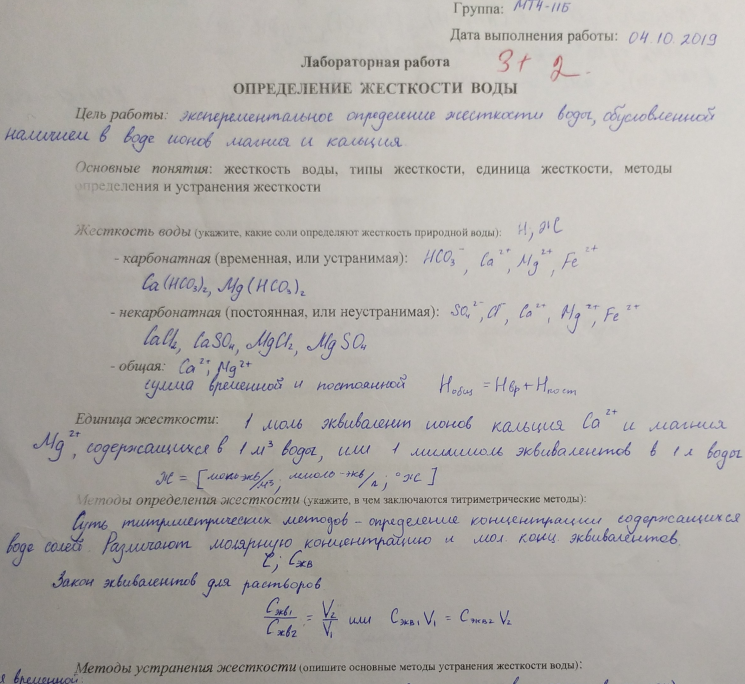 Группа: МТ4-11Б
Дата выполнения работы: 04.10.2019
Лабораторная работа 3+ 2.
ОПРЕДЕЛЕНИЕ ЖЕСТКОСТИ ВОДЫ
Цель работы: эксперементальное определение жесткости воды, обусловленной
наличием в воде ионов магния и кальция
Основные понятия: жесткость воды, типы жесткости, единица жесткости, методы
определения и устранения жесткости
Жесткость воды (укажите, какие соли определяют жесткость природной воды): Н, Ж
- карбонатная (временная, или устранимая): HCO₃⁻, Ca²⁺, Mg²⁺, Fe²⁺
Ca(HCO₃)₂, Mg(HCO₃)₂
- некарбонатная (постоянная, или неустранимая): SO₄²⁻, Cl⁻, Ca²⁺, Mg²⁺, Fe²⁺
CaCl₂, CaSO₄, MgCl₂, MgSO₄
- общая: Ca²⁺, Mg²⁺
сумма временной и постоянной Hобщ = Hвр + Hпост
Единица жесткости: 1 моль эквивалент ионов кальция Ca²⁺ и магния
Mg²⁺, содержащихся в 1 м³ воды, или 1 миллимоль эквивалентов в 1 л воды
Ж = [моль-экв/м³; ммоль-экв/л; °Ж]
Методы определения жесткости (укажите, в чем заключаются титриметрические методы):
Суть титриметрических методов - определение концентрации содержащихся
воде солей. Различают молярную концентрацию и мол. конц. эквивалентов.
C; Cэкв
Закон эквивалентов для растворов
Cэкв1/Cэкв2 = V₂/V₁ или Cэкв1 V₁ = Cэкв2 V₂
Методы устранения жесткости (опишите основные методы устранения жесткости воды):
временной